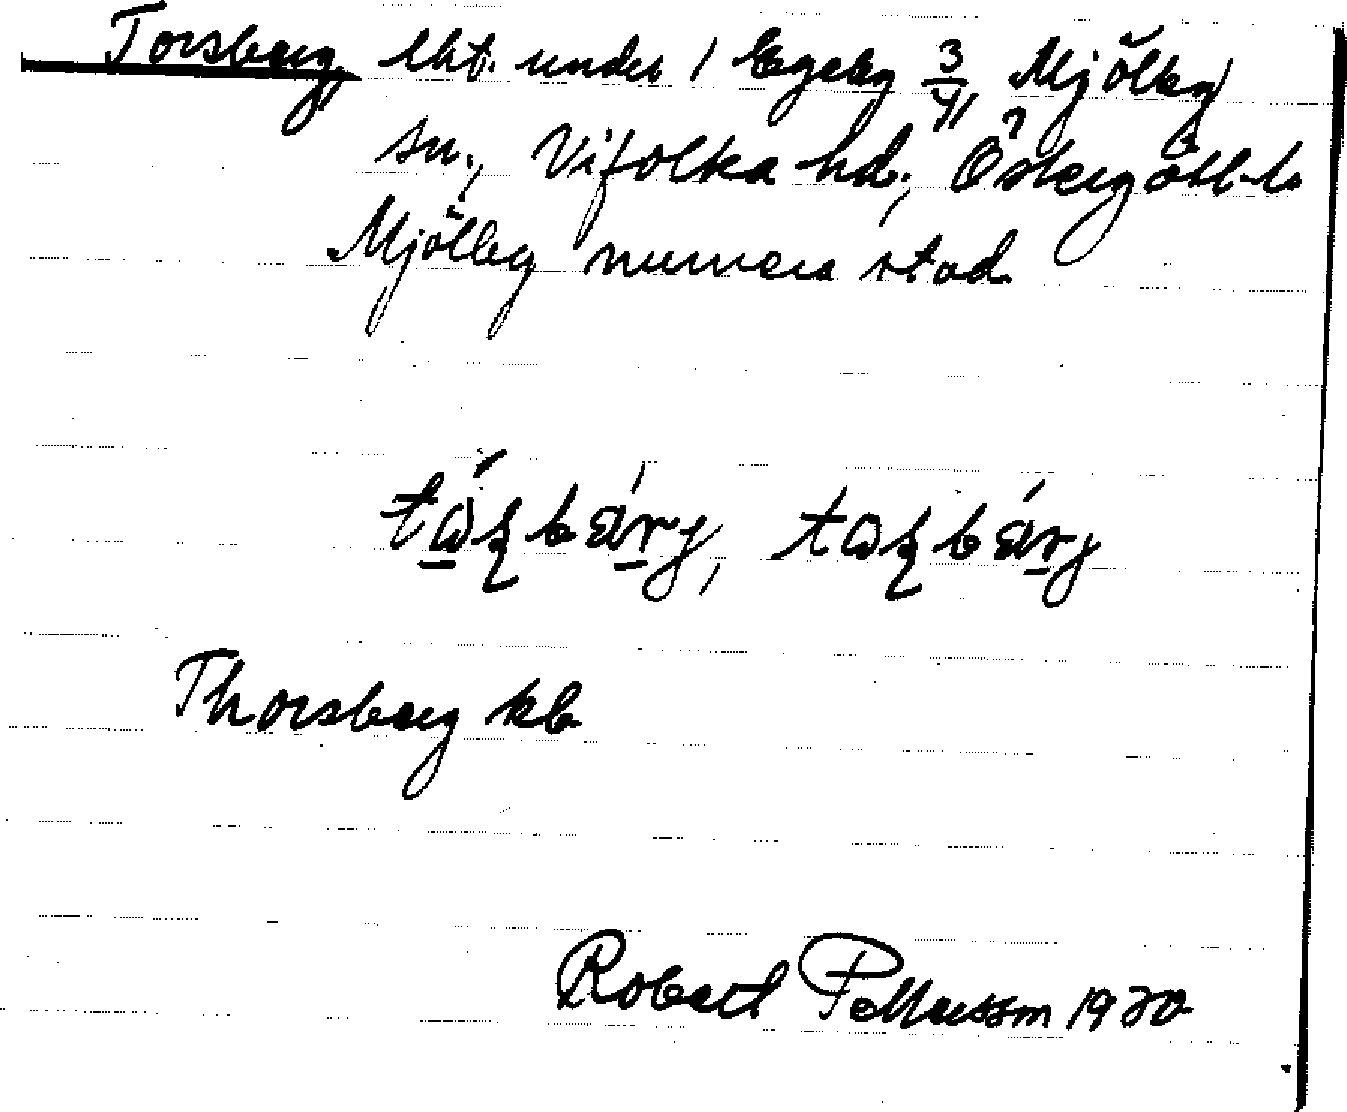 Torsberg, lht. under 1 Egeby 3/4 Mjölby
sn., Vifolka hd., Östergötl. l.
Mjölby numera stad
Thorsberg kb
Robert Pettersson 1930